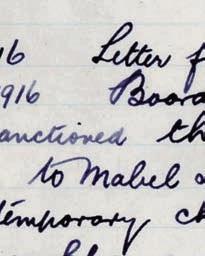 16 Letter f
916 Board
anctioned th
to Mabel
temporary ch